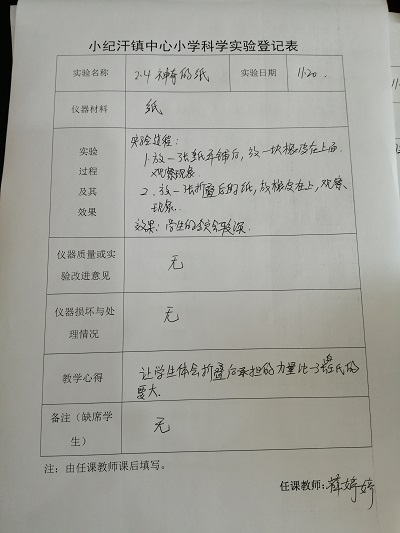 小纪汗镇中心小学科学实验登记表
实验名称 2.4 神奇的纸 实验日期 11.20.
仪器材料 纸
实验过程及其效果
实验过程:
1.放一张纸平铺后,放一块橡皮在上面.
观察现象.
2.放一张折叠后的纸,放橡皮在上,观察
现象.
效果: 学生的体会较深.
仪器质量或实验改进意见 无
仪器损坏与处理情况 无
教学心得 让学生体会折叠后承担的力量比一张纸的
要大.
备注(缺席学生) 无
注:由任课教师课后填写。
任课教师: 薛婷婷